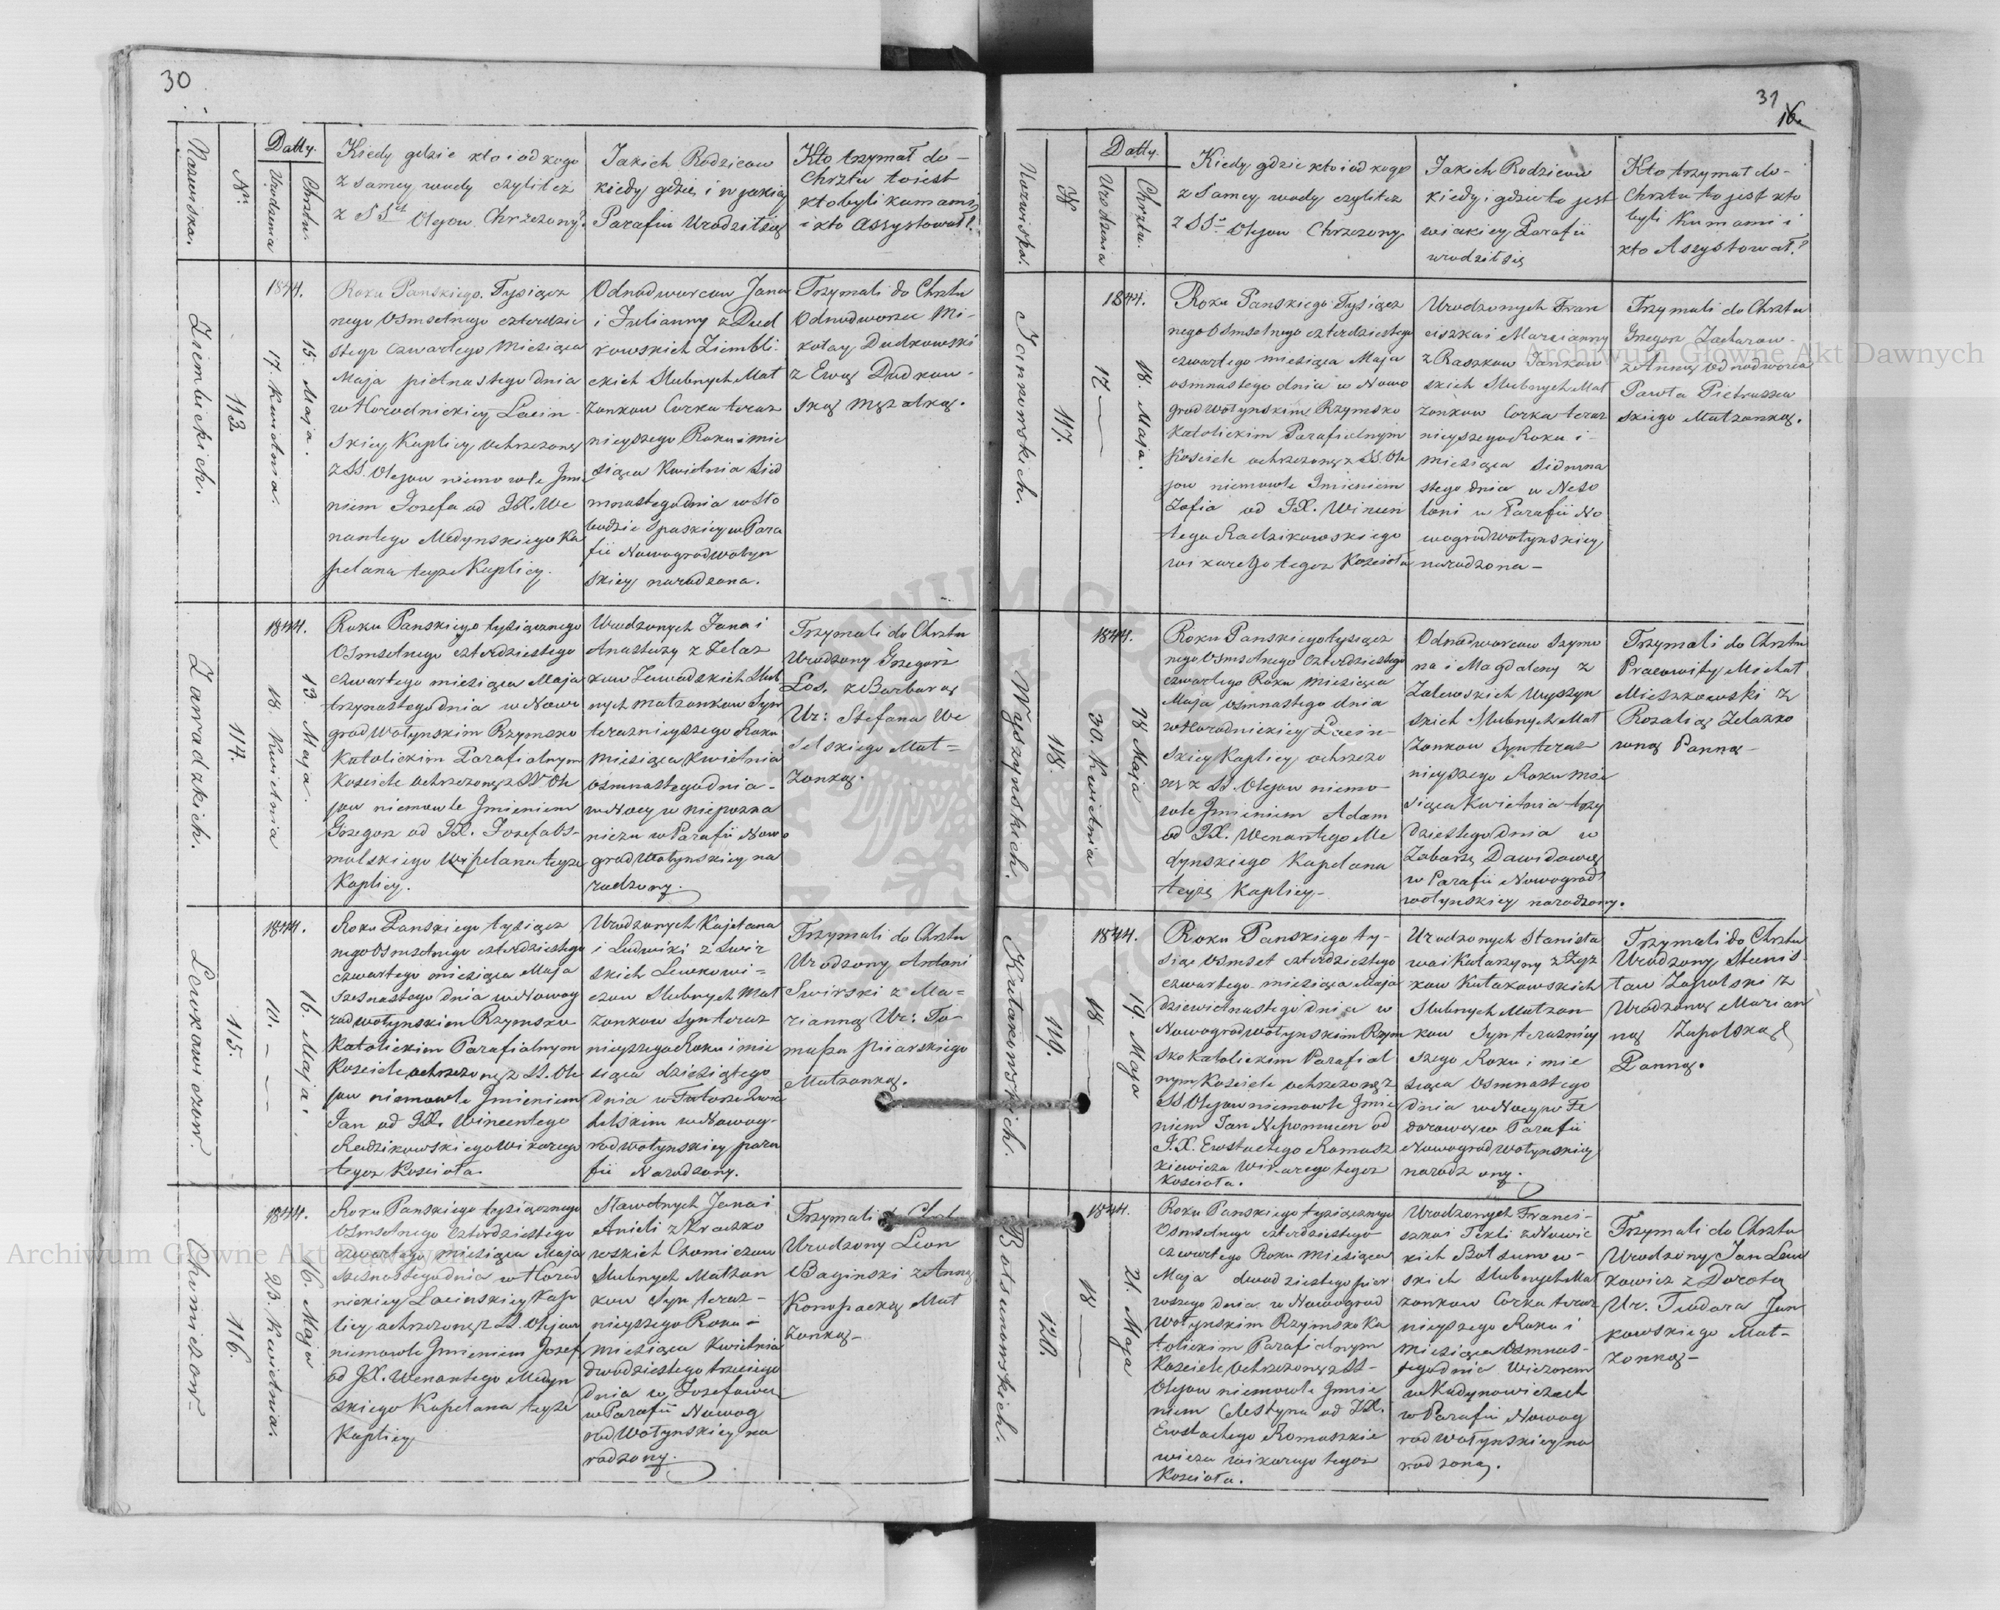 30
Nazwiska.
Nr.
Datty.
Urodzenia
Chrztu.
Kiedy gdzie kto i od kogo
z samey wody czyli też
z SSch Olejow Chrzczony?
Jakich Rodzicow
kiedy, gdzie i w jakiey
Parafii Urodził się
Kto trzymał do –
Chrztu to iest
kto byli kumami
i kto Assystował?
Ziembickich.
113.
1844.
17. Kwietnia.
15. Maja.
Roku Panskiego Tysiącz
nego Osmsetnego czterdzie
stego czwartego Miesiąca
Maja pietnastego dnia
w Horodnickiey Lacin-
skiey Kaplicy ochrzczony
z SS. Olejow niemowle Jmie
niem Jozefa od JX. We
nantego Medynskiego Ka
pelana teyże Kaplicy.
Odnodworcow Jana
i Julianny z Dud
kowskich Ziembi-
ckich Slubnych Mał
żonkow Corka teraz
nieyszego Roku i mie
siąca Kwietnia Sied
mnastego dnia w Sło
bodzie Spaskiey w Para
fii Nowogradwołyn
skiey narodzona.
Trzymali do Chrztu
Odnodworzec Mi-
kołay Dudkowski
z Ewą Dudkow-
ską Mężatką.
Zawadzkich.
114.
1844.
18. Kwietnia
13. Maja.
Roku Panskiego tysiącznego
Osmsetnego czterdziestego
czwartego miesiąca Maja
trzynastego dnia w Nowo
gradwołynskim Rzymsko
Katolickim Parafialnym
Kosciele ochrzczony z SSch Ole
jow niemowle Jmieniem
Grzegorz od JX. Jozefa Os-
molskiego Kapelana teyże
Kaplicy.
Urodzonych Jana i
Anastazy z Żelaz
kow Zawadzkich Slub
nych małżonkow Syn
teraznieyszego Roku
miesiąca Kwietnia
osmnastego dnia –
w Nocy w Niepozna
niczu w Parafii Nowo
gradwołynskiey na
rodzony.
Trzymali do Chrztu
Urodzony Grzegorz
Łos. z Barbarą
Ur: Stefana We
selskiego Mał=
żonką.
Lewkowiczow.
115.
1844.
10. – – –
16. Maja.
Roku Panskiego tysiącz
nego Osmsetnego czterdziestego
czwartego miesiąca Maja
szesnastego dnia w Nowog
radwołynskim Rzymsko
Katolickim Parafialnym
Kosciele ochrzczony z SS. Ole
jow niemowle Jmieniem
Jan od JX. Wincentego
Radzikowskiego Wikarego
tegoż Kosciola.
Urodzonych Kajetana
i Ludwiki z Swir
skich Lewkowi=
czow Slubnych Mał
żonkow Syn teraz
nieyszego Roku i mie
siąca dziesiątego
dnia w Futorze Zwia
helskim w Nowog-
radwołynskiey para
fii Narodzony.
Trzymali do Chrztu
Urodzony Antoni
Swirski z Ma-
rianną Ur: To-
masza Piiarskiego
Małżonką.
Chomiczow.
116.
1844.
23. Kwietnia.
16. Maja
Roku Panskiego tysiącznego
Osmsetnego czterdziestego
czwartego miesiąca Maja
szesnastego dnia w Horod
nickiey Lacinskiey Kap
licy ochrzczony z SS. Olejow
niemowle Jmieniem Jozef
od JX. Wenantego Medyn
skiego Kapelana teyże
Kaplicy
Sławetnych Jana i
Anieli z Kraszko
wskich Chomiczow
Slubnych Małżon
kow Syn teraz-
nieyszego Roku i
miesiąca Kwietnia
dwudziestego trzeciego
dnia w Jozefowce
w Parafii Nowog
radwołynskiey na
rodzony.
Trzymali do Chrztu
Urodzony Leon
Baginski z Anną
Konopacką Mał
żonką –
31
16.
Nazwiska.
N
Datty.
Urodzenia
Chrztu.
Kiedy gdzie kto i od kogo
z Samey wody czyli też
z SSch Olejow Chrzczony
Jakich Rodzicow
kiedy i gdzie to jest
w iakiey Parafii
urodził się
Kto trzymał do-
Chrztu to jest kto
byli Kumami i
kto Assystował?
Jankowskich.
117.
1844.
17 –
18. Maja.
Roku Panskiego Tysiącz
nego Osmsetnego czterdziestego
czwartego miesiąca Maja
osmnastego dnia w Nowo
gradwołynskim Rzymsko
Katolickim Parafialnym
Kosciele ochrzczony z SS. Ole
jow niemowle Jmieniem
Zofia od JX. Wincen
tego Radzikowskiego
wikarego tegoż Kosciola
Urodzonych Fran
ciszka i Marcianny
z Raszkow Jankow
skich Slubnych Mał
żonkow Corka teraz
nieyszego Roku i –
Miesiąca Siedmna
stego dnia w Neso
łoni w Parafii No
wogradwołynskiey
narodzona –
Trzymali do Chrztu
Grzegorz Zacharow-
z Anną Odnodworca
Pawła Pietraszew
skiego Małżonką.
Wyszynskich.
118.
1844.
30. Kwietnia
18 Maja
Roku Panskiego tysiącz
nego Osmsetnego czterdziestego
czwartego Roku miesiąca
Maja osmnastego dnia
w Horodnickiey Lacin-
skiey Kaplicy ochrzczo
ny z SS. Olejow niemo-
wle Jmieniem Adam
od JX. Wenantego Me
dynskiego Kapelana
teyże Kaplicy –
Odnodworcow Szymo
na i Magdaleny z
Zalewskich Wyszyn
skich Slubnych Mał
żonkow Syn teraz
nieyszego Roku mie
siąca Kwietnia trzy
dziestego dnia w
Zaborzę Dawidowcę
w Parafii Nowograd
wołynskiey narodzony.
Trzymali do Chrztu
Pracowity Michał
Mieszkowski z
Rozalią Zelazko
wną Panną –
Kułakowskich.
119.
1844.
18 –
19. Maja
Roku Panskiego ty-
siąc Osmset czterdziestego
czwartego miesiąca Maja
dziewietnastego dnia w
Nowogradwołynskim Rzym
sko Katolickim Parafial
nym Kosciele ochrzczony z
SS Olejow niemowle Jmie
niem Jan Nepomucen od
JX. Ewstachego Romasz
kiewicza Wikarego tegoż
Kosciola.
Urodzonych Stanisła
wa i Katarzyny z Zyz
kow Kułakowskich
Slubnych Małżon
kow Syn teraźniey
szego Roku i mie
siąca Osmnastego
dnia w Nocy w Fe
dorowce w Parafii
Nowogradwołynskiey
narodzony.
Trzymali do Chrztu
Urodzony Stanis-
ław Zapolski z
Urodzoną Marian
ną Zapolską
Panną.
Bołsunowskich.
120.
1844.
18 –
21. Maja
Roku Panskiego tysiącznego
Osmsetnego czterdziestego
czwartego Roku Miesiąca
Maja dwudziestego pier
wszego dnia w Nowograd
wołynskim Rzymsko Ka
tolickim Parafialnym
Kosciele Ochrzczony z SS-
Olejow niemowle Jmie
niem Celestyna od JX.
Ewstachego Romaszkie
wicza wikarego tegoż
Kosciola.
Urodzonych Franci-
szka i Tekli z Nowic
kich Bołsunow-
skich Slubnych Mał
żonkow Corka teraz
nieyszego Roku i
miesiąca Osmnas-
tego dnia Wieczorem
w Kudynowiczach
w Parafii Nowog
radwołynskiey na
rodzona.
Trzymali do Chrztu
Urodzony Jan Lew
kowicz z Dorotą
Ur. Teodora Jan
kowskiego Mał-
żonką –
Archiwum Główne Akt Dawnych
Archiwum Główne Akt Dawnych